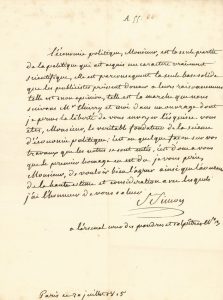 l'économie politique, Monsieur, est la seule partie
de la politique qui ait acquis un caractère vraiment
scientifique, elle est par conséquent la seule base solide
que les publicistes puissent donner à leurs raisonnements
telle est mon opinion, telle est la marche que nous
suivons Mr Thierry et moi dans un ouvrage dont
je prends la liberté de vous envoyer l'esquisse. vous
êtes, Monsieur, le véritable fondateur de la science
d'économie politique; c'est en quelque façon sur vos
travaux que les notres se sont entés, c'est donc à vous
que le premier hommage en est dû. je vous prie,
Monsieur, de vouloir bien l'agréer ainsi que l'assurance
de la haute estime et considération avec lesquels
j'ai l'honneur de vous saluer
St Simon
à l'arsenal cour des poudres et salpêtres
Paris ce 20 juillet 1815